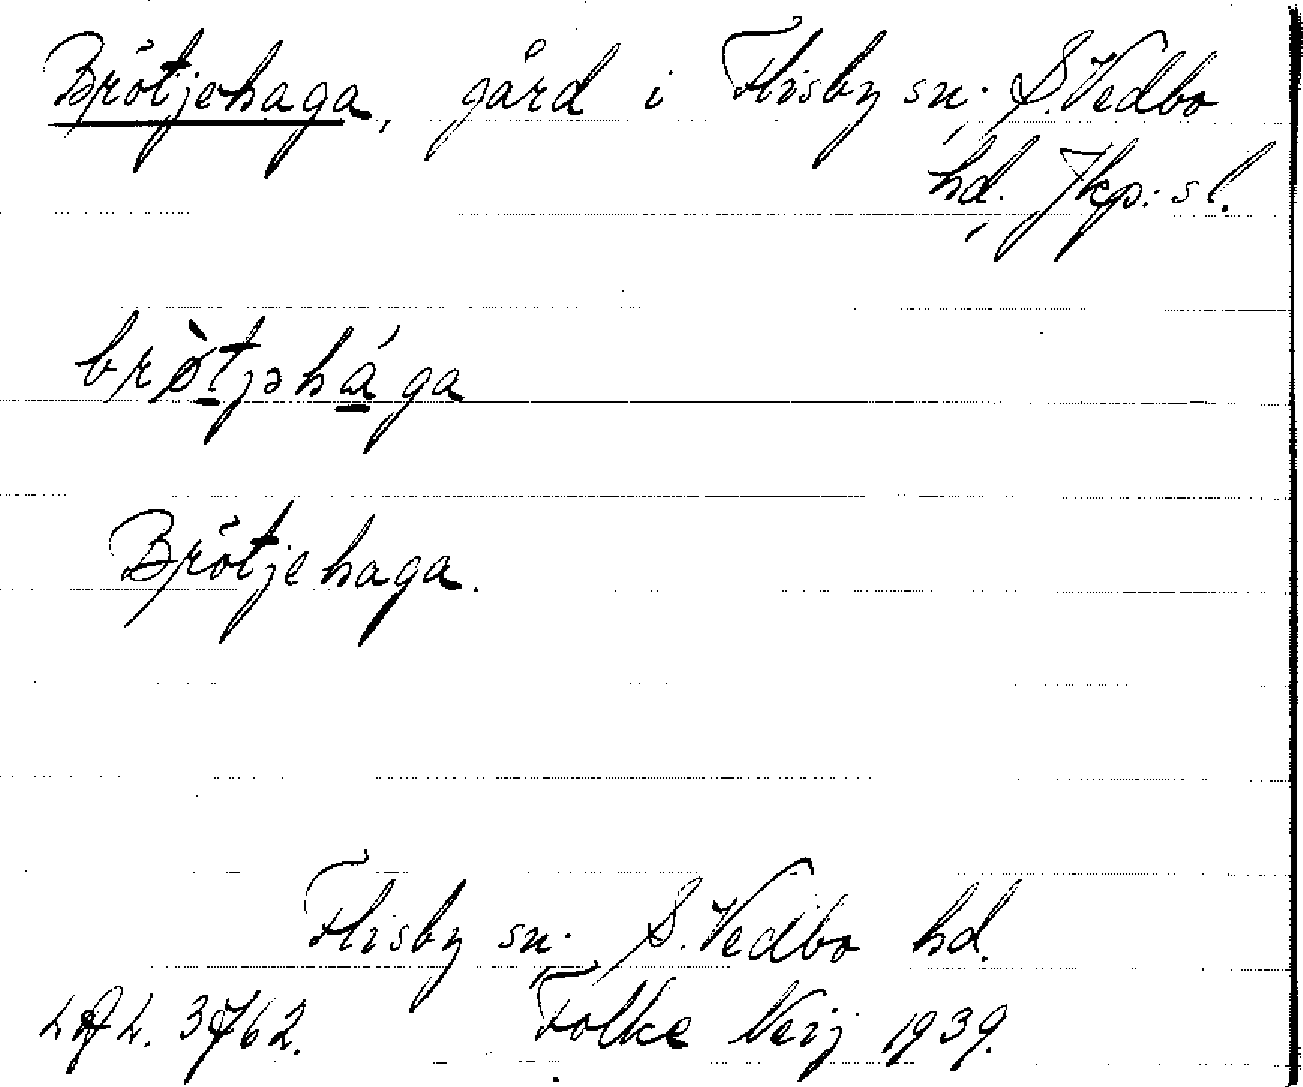 Brötjehaga, gård i Flisby sn. S. Vedbo
hd. Jkp:s l.
brötjəhága
Brötjehaga.
Flisby sn. S. Vedbo hd.
Folke Neij 1939.